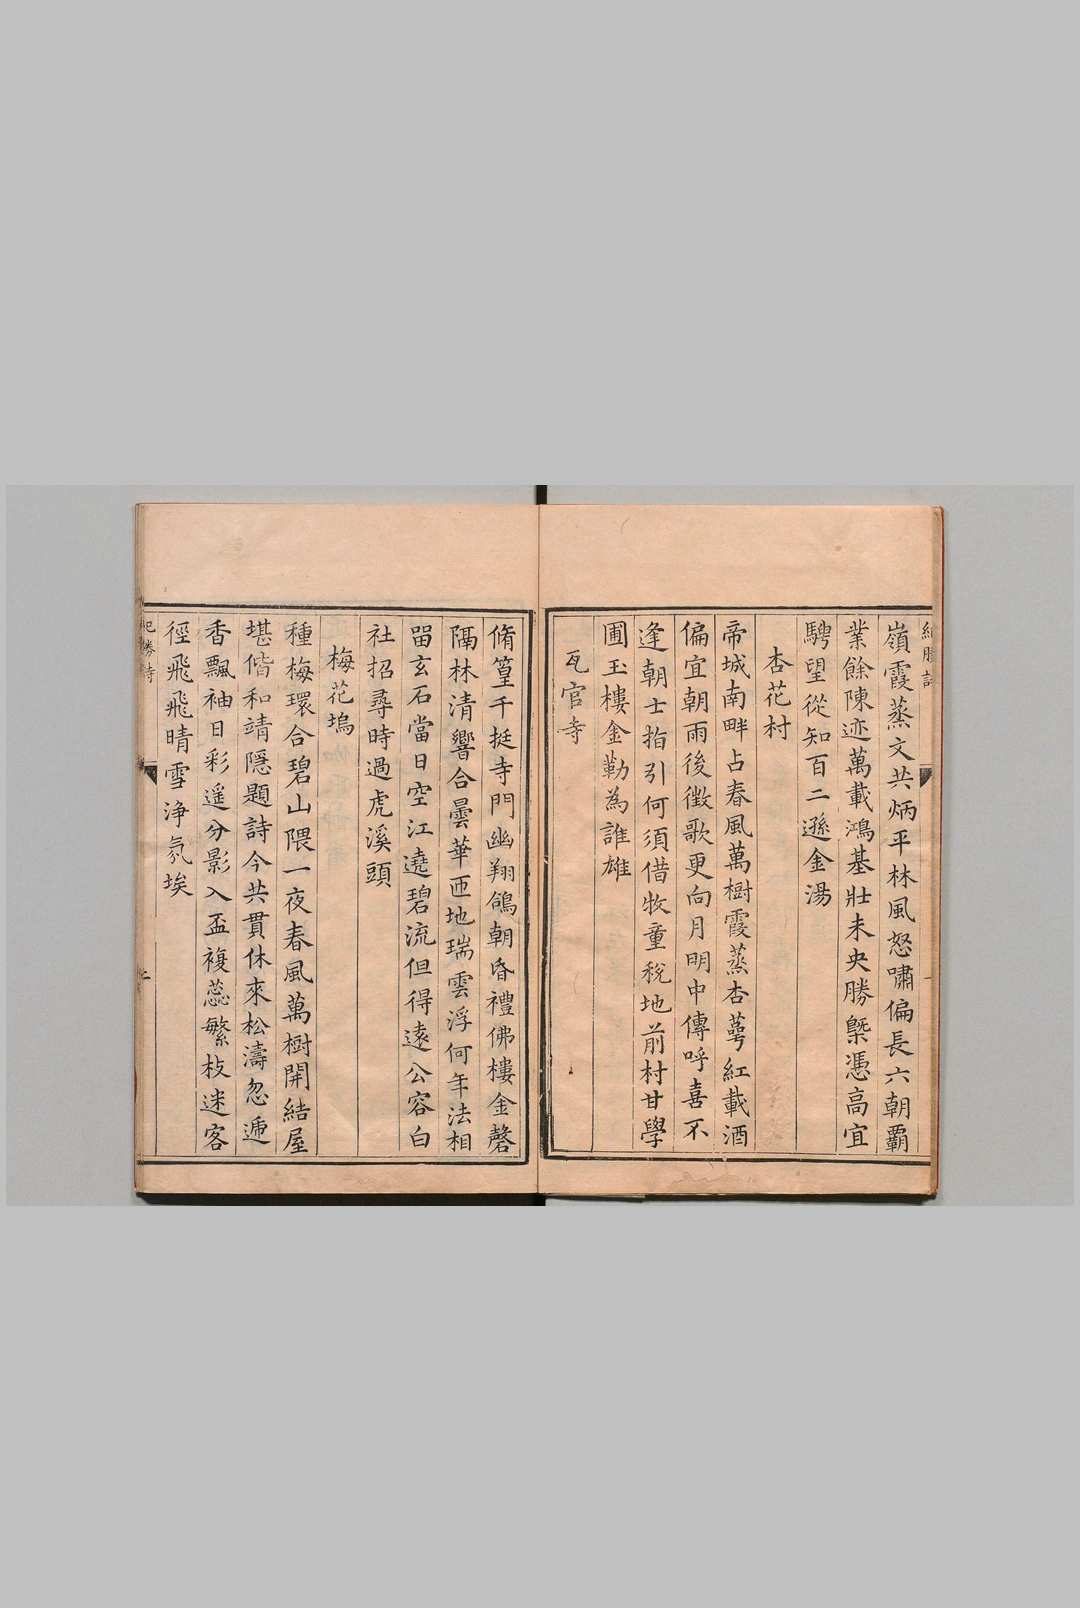 嶺霞蒸文共炳平林風怒嘯偏長六朝霸
業餘陳迹萬載鴻基壯未央勝槩憑高宜
騁望從知百二遜金湯
杏花村
帝城南畔占春風萬樹霞蒸杏萼紅載酒
偏宜朝雨後徵歌更向月明中傳呼喜不
逢朝士指引何須借牧童稅地前村甘學
圃玉樓金勒為誰雄
瓦官寺
脩篁千挺寺門幽翔鴿朝昏禮佛樓金磬
隔林清響合曇華匝地瑞雲浮何年法相
留玄石當日空江遶碧流但得遠公容白
社招尋時過虎溪頭
梅花塢
種梅環合碧山隈一夜春風萬樹開結屋
堪偕和靖隱題詩今共貫休來松濤忽遞
香飄袖日彩遙分影入盃複蕊繁枝迷客
徑飛飛晴雪浄氛埃
紀勝詩